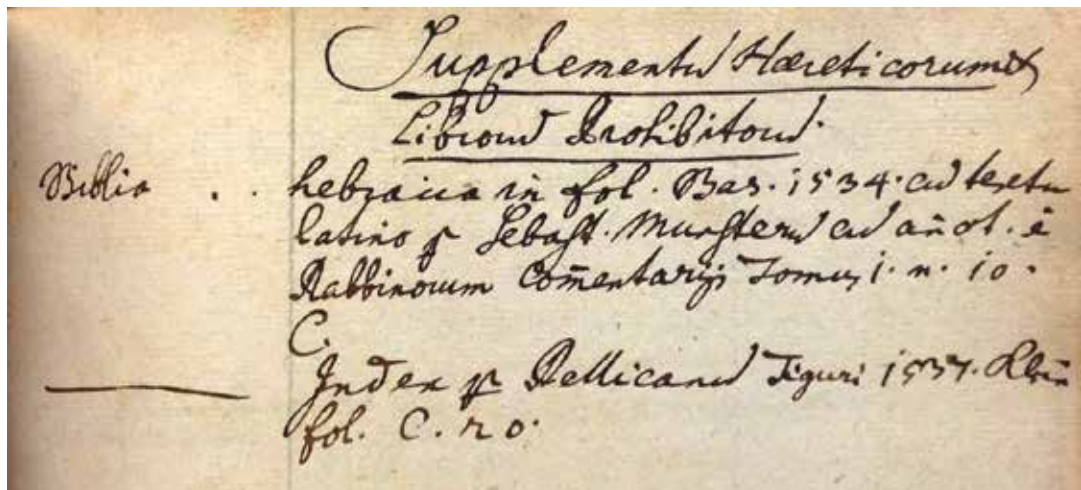 Supplementũ Haereticorum et
Librorũ Prohibitorũ.
Biblia . . hebraica in fol. Bas. 1534. cũ textu
latino p Sebast. Munsterũ cũ añot. è
Rabbinorum Com̃entarijs Tomus 1. n. 10.
C.
Index p Pellicanũ Tiguri 1537.
fol. C. 20.